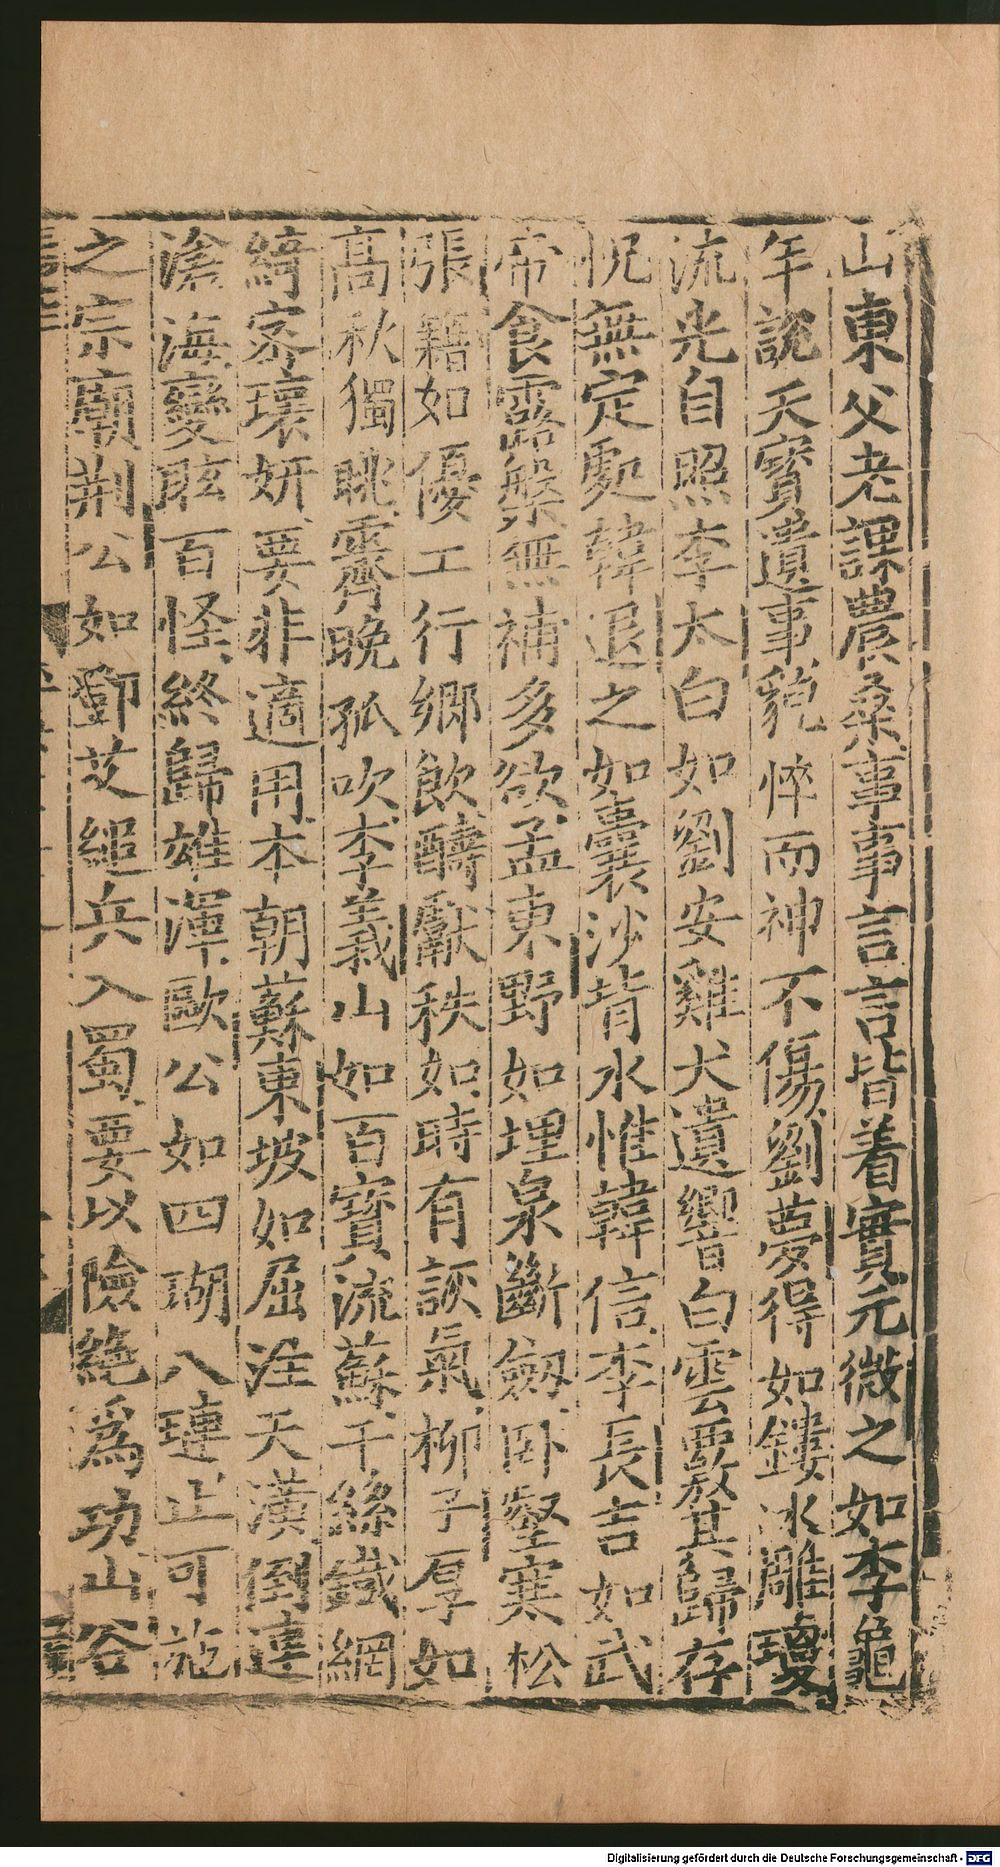 山東父老課農桑事事言言皆着實元微之如李龜
年說天寶遺事貌悴而神不傷劉夢得如鏤冰雕瓊
流光自照李太白如劉安雞犬遺響白雲覈其歸存
怳無定處韓退之如囊沙背水惟韓信李長吉如武
帝食露槃無補多欲孟東野如埋泉斷劔臥壑寒松
張籍如優工行鄉飲醻獻秩如時有詼氣柳子厚如
高秋獨眺霽晚孤吹李義山如百寶流蘇千絲鐵網
綺密瓌妍要非適用本朝蘇東坡如屈注天潢倒連
滄海變眩百怪終歸雄渾歐公如四瑚八璉止可施
之宗廟荆公如鄧艾縋兵入蜀要以險絶爲功山谷
Digitalisierung gefördert durch die Deutsche Forschungsgemeinschaft - DFG